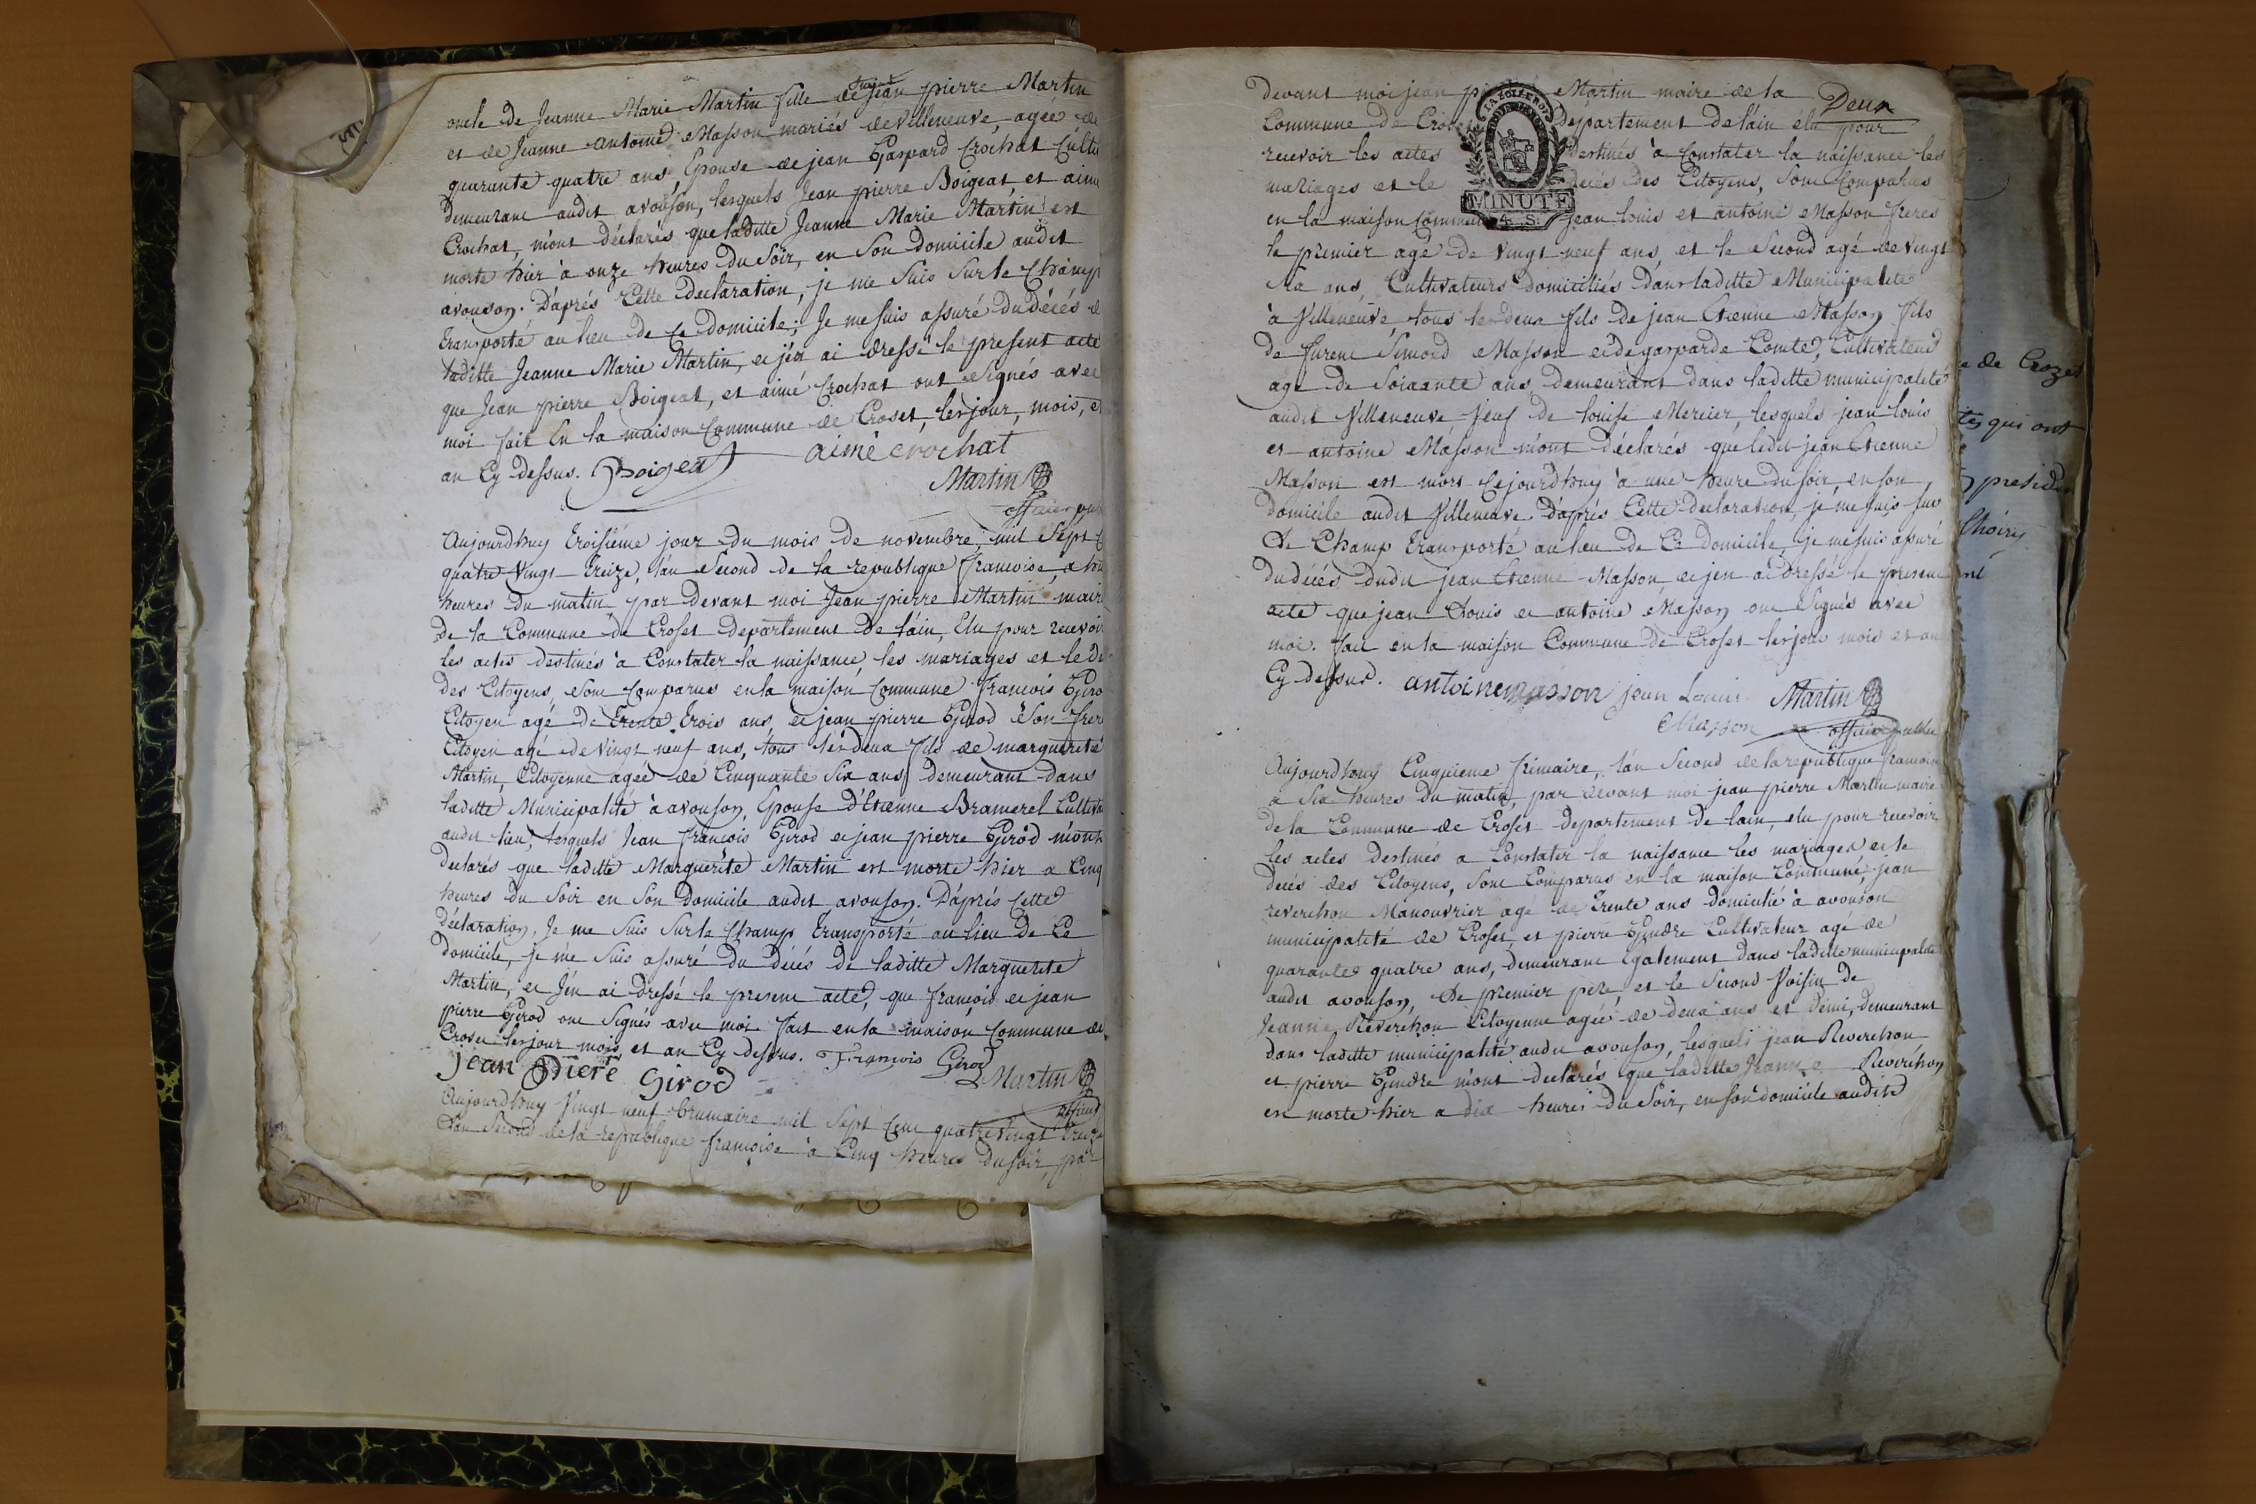 oncle de Jeanne Marie Martin fille de feu jean pierre Martin
et de Jeanne antoine Masson mariés de Villeneuve, agée de
quarante quatre ans, Epouse de jean Gaspard Crochat Cultiv
demeurant audit avouson, lesquels Jean pierre Boigeat et aimé
Crochat, m'ont déclarés que laditte Jeanne Marie Martin est
morte hier à onze heures du Soir, en Son domicile audit
avouson. D'aprés Cette declaration, je me Suis Sur le Champ
transporté au lieu de Ce domicile; Je me suis assuré du décés de
laditte Jeanne Marie Martin, et j'en ai dressé le present acte
que Jean pierre Boigeat, et aimé Crochat ont Signés avec
moi fait En la maison Commune de Croset, les jour, mois, et
an Cy dessus. Boigeat aimé crochat
Martin
officier pu
Aujourdhuy troisiéme jour du mois de novembre, mil Sept C
quatre Vingt treize, l'an Second de la republique francoise, a hu
heures du matin, par devant moi Jean pierre Martin maire
de la Commune de Croset departement de l'ain, Elu pour recevoir
les actes destinés à Constater la naissance, les mariages et le dé
des Citoyens, Sont Comparus en la maison Commune francois Giro
Citoyen agé de trente trois ans, et jean pierre Girod Son frere
Citoyen agé de Vingt neuf ans, tous les deux fils de marguerite
Martin, Citoyenne agée de Cinquante Six ans, demeurant dans
laditte Municipalité à avouson, Epouse d'Etienne Bramerel Cultiva
audit lieu, lesquels Jean francois Girod et jean pierre Girod m'ont
declarés que laditte Marguerite Martin est morte hier a Cinq
heures du Soir en Son domicile audit avouson. D'aprés Cette
déclaration, Je me Suis Sur le Champ transporté au lieu de Ce
domicile, je me Suis assuré du décés de laditte Marguerite
Martin, et J'en ai dressé le present acte, que francois et jean
pierre Girod ont Signés avec moi fait en la maison Commune de
Croset les jour mois et an Cy dessus. François Girod
jean Piere Girod Martin
officier
Aujourdhuy Vingt neuf brumaire mil Sept Cent quatre Vingt treize
L'an Second de la republique françoise à Cinq heures du Soir, par
Deux
devant moi jean pi Martin maire de la
Commune de Crose département de l'ain élu pour
recevoir les actes destinés à Constater la naissance les
mariages et le décés des Citoyens, Sont Comparus
en la maison Commun jean louis et antoine Masson freres
le premier agé de Vingt neuf ans, et le Second agé de vingt
Six ans, Cultivateurs domiciliés dans laditte Municipalité
à Villeneuve, tous les deux fils de jean Etienne Masson fils
de furent Masson et de gasparde Comte, Cultivateur
agé de Soixante ans, demeurant dans laditte municipalité
audit Villeneuve, Veuf de louise Mercier, lesquels jean louis
et antoine Masson m'ont déclarés que ledit jean Etienne
Masson est mort Cejourdhuy à une heure du soir, en son
domicile audit Villeneuve. D'aprés Cette declaration, je me suis sur
Le Champ transporté au lieu de Ce domicile, je me suis assuré
du décés dudit jean Etienne Masson, et jen ai dressé le present
acte que jean Louis et antoine Masson ont Signés avec
moi. fait en la maison Commune de Croset les jour mois et an
Cy dessus. antoine masson jean Louis Martin
Masson officier public
Aujourdhuy Cinquieme frimaire, l'an Second de la republique francoise
a Six heures du matin, par devant moi jean pierre Martin maire
de la Commune de Croset departement de lain, elu pour recevoir
les actes destinés a Constater la naissance les mariages et le
décés des Citoyens, Sont Comparus en la maison Commune, jean
reverchon Manouvrier agé de trente ans domicilié à avouson
municipalité de Croset, et pierre Gindre Cultivateur agé de
quarante quatre ans, demeurant également dans laditte municipalité
audit avouson, Le premier pere, et le Second Voisin de
Jeanne Reverchon Citoyenne agée de deux ans et demi, demeurant
dans laditte municipalité audit avouson, lesquels jean Reverchon
et pierre Gindre m'ont declarés que laditte Jeanne Reverchon
est morte hier a dix heures du Soir, en son domicile audit
LA LOI LE ROI
MINUTE
4. S.
e de Crozet
tes qui ont
presid
Choiry